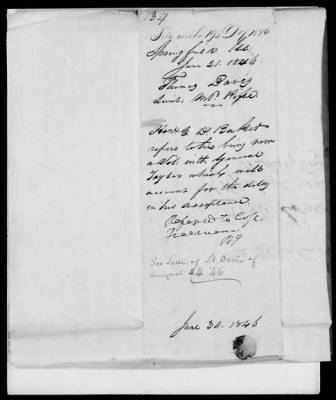 134
Springfield Ills.
June 21. 1846
Thomas Davis
Hon E D Baker
refers to his being now
a Vol. with General
Taylor which will
account for the delay
in his acceptance
Referred to Capt
Freeman
RJ
See Letter of Lt Davis of
August 24 '46
June 30. 1846